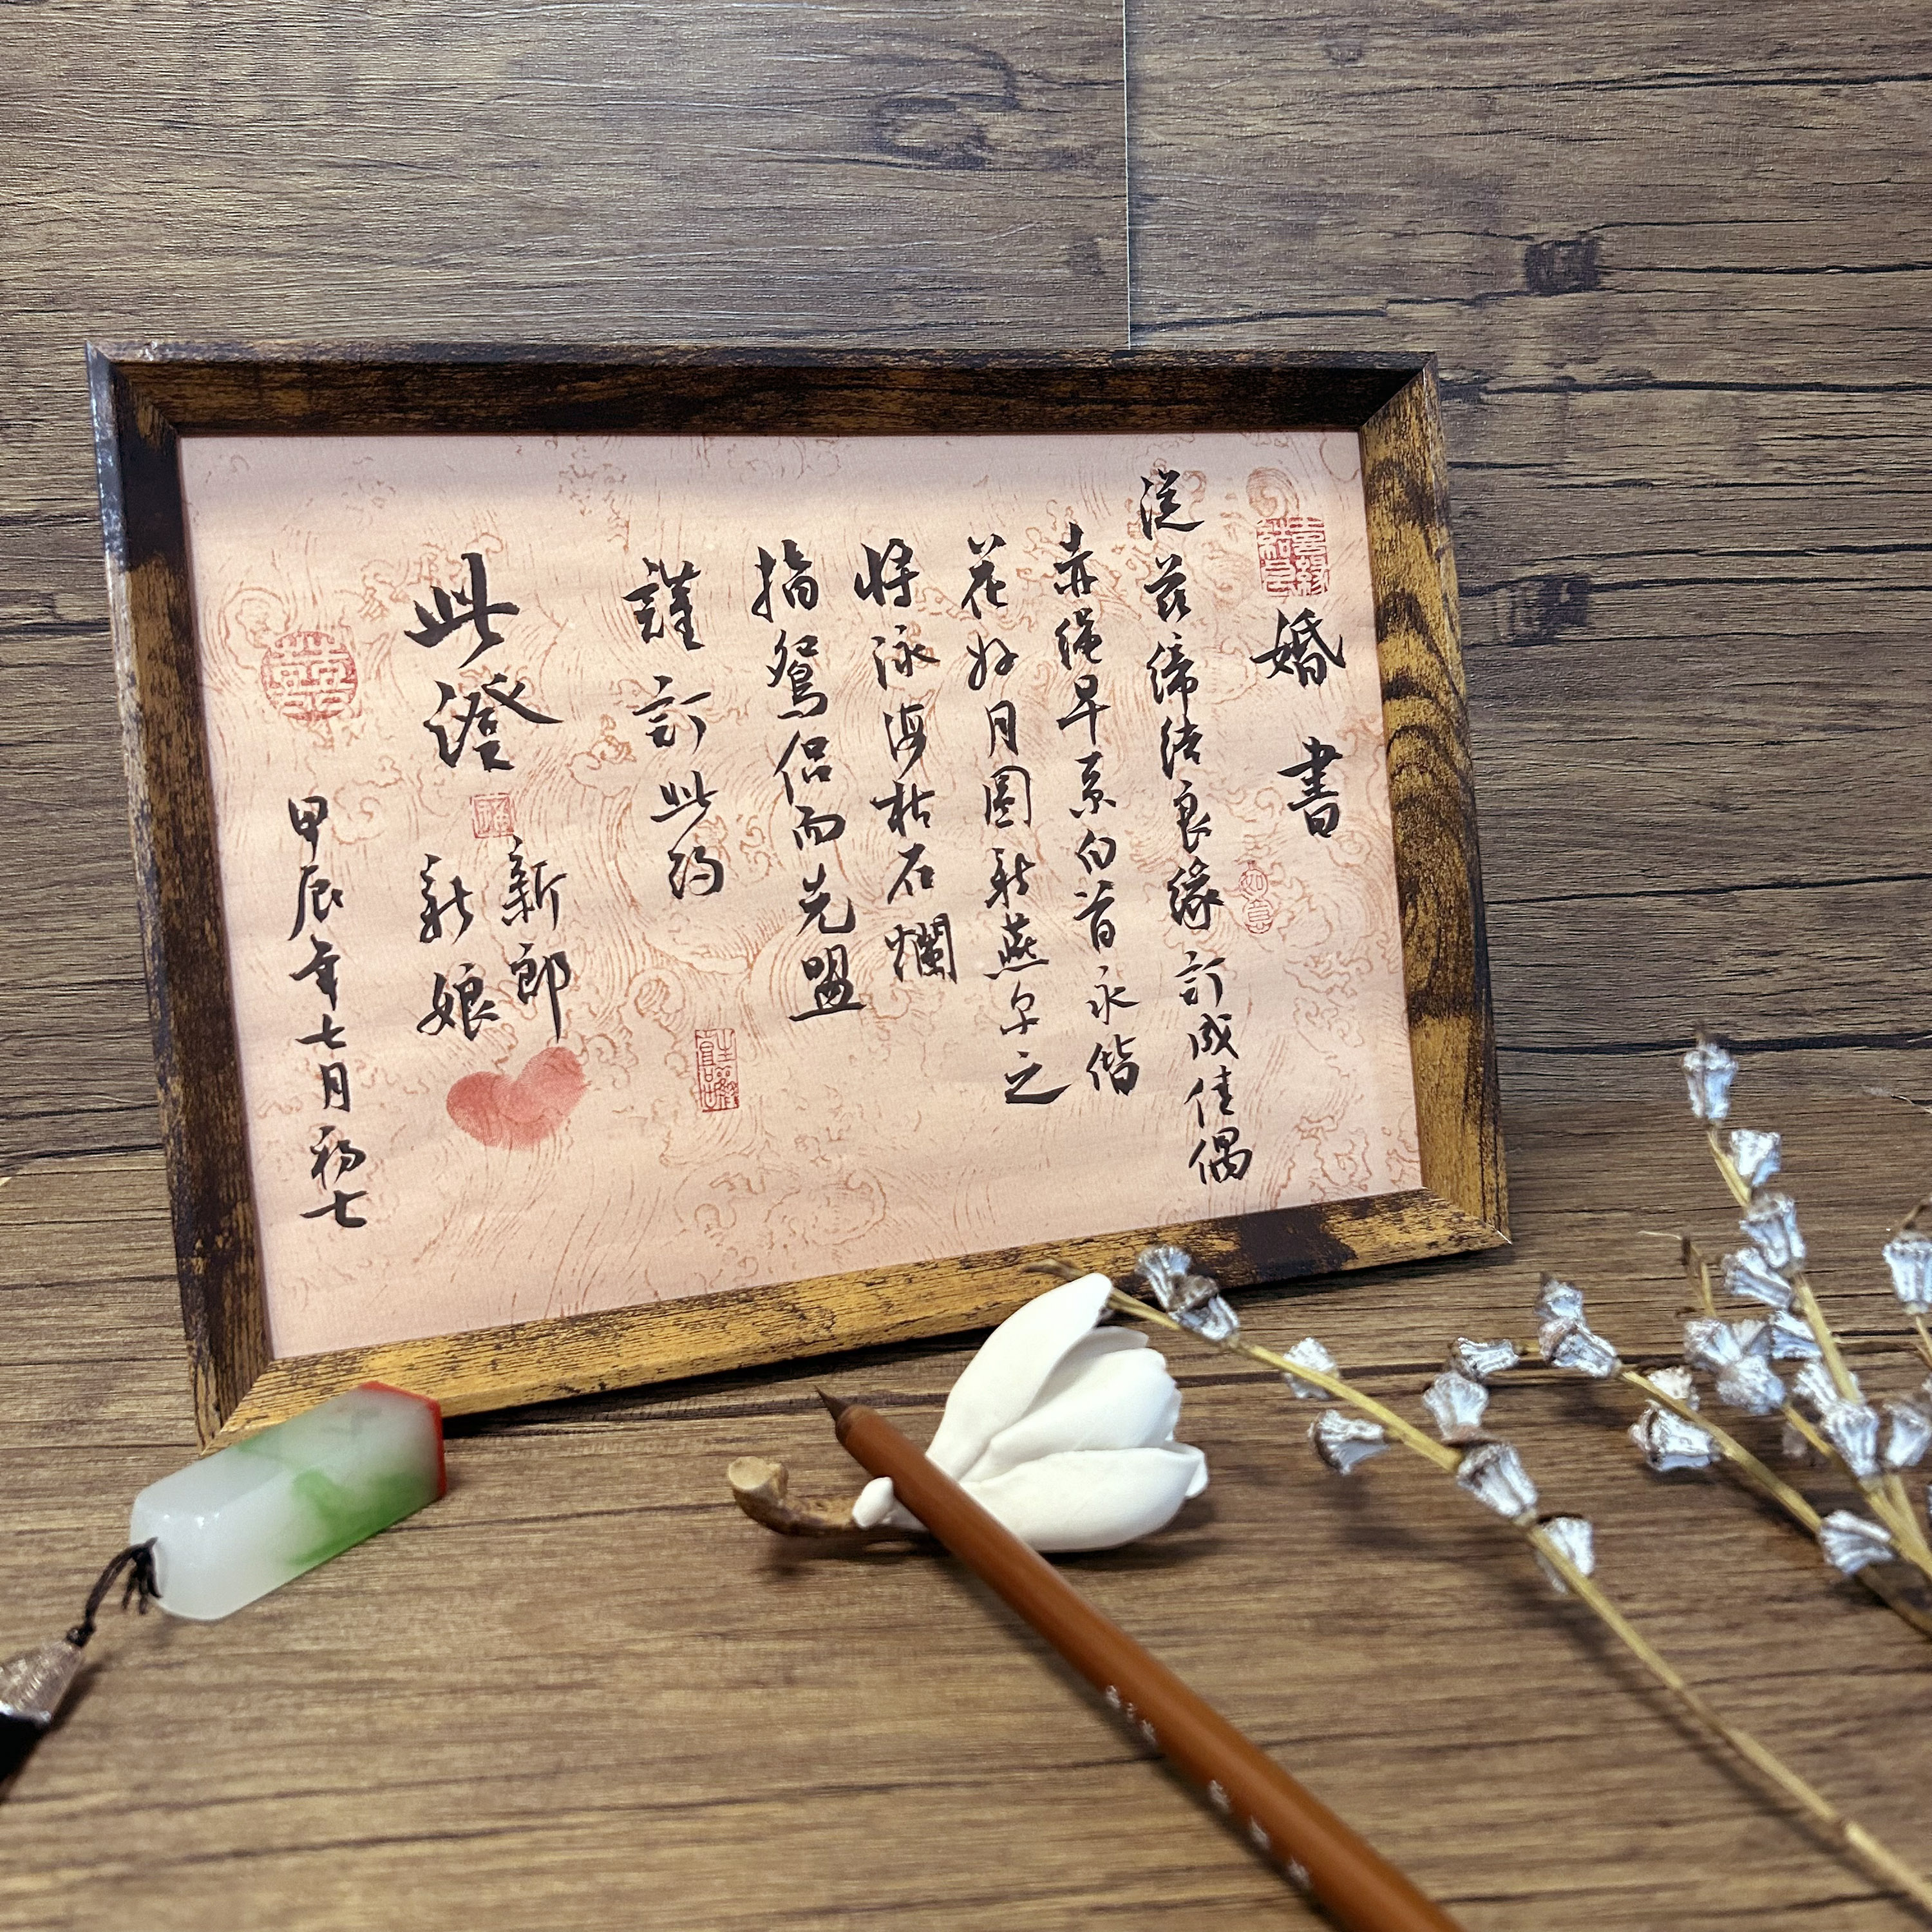 婚書
從茲締結良緣訂成佳偶
赤繩早系白首永偕
花好月圓新燕尔之
将泳海枯石爛
指鴛侣而先盟
謹訂此约
此證
新郎
新娘
甲辰年七月初七
如意